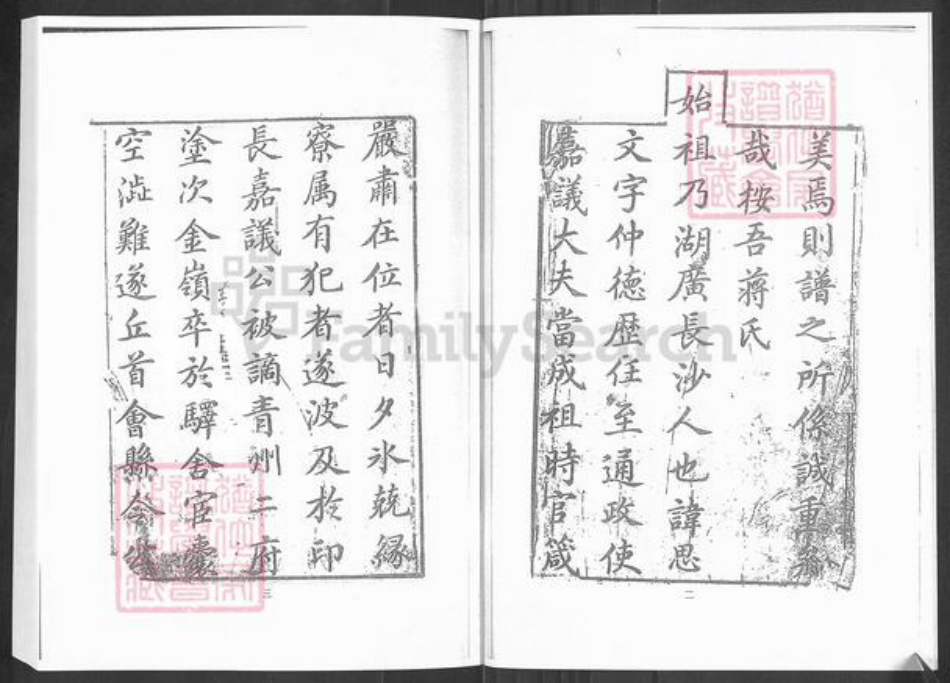 美焉則譜之所係誠重矣
哉按吾蔣氏
始祖乃湖廣長沙人也諱思
文字仲德歴任至通政使
嘉議大夫當成祖時官箴
二
嚴肅在位者日夕氷兢緣
寮属有犯者遂波及於印
長嘉議公被謫青州二府
塗次金嶺卒於驛舍宦囊
空澁難遂丘首會縣令
三
FamilySearch